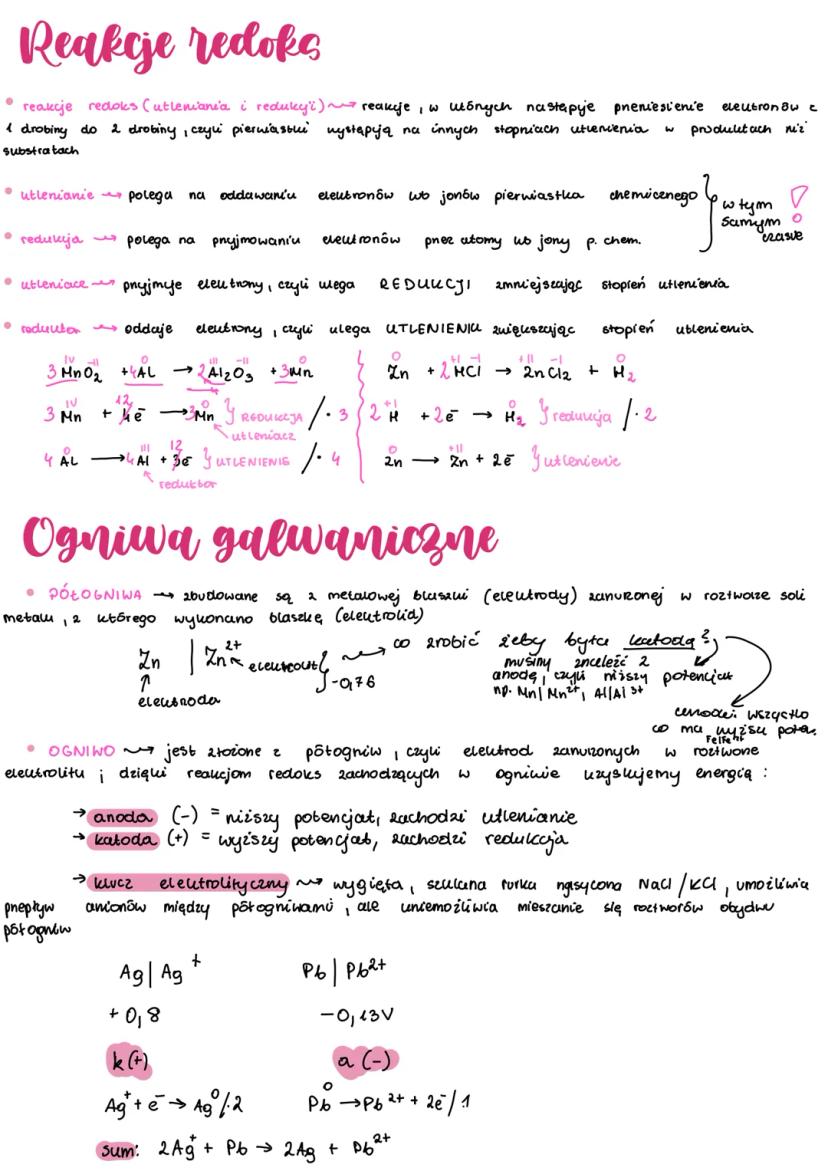 Reakcje redoks
• reakcje redoks (utleniania i redukcji) ⇝ reakcje, w których następuje przeniesienie elektronów z
1 drobiny do 2 drobiny, czyli pierwiastki występują na innych stopniach utlenienia w produktach niż
substratach
• utlenianie ⇝ polega na oddawaniu elektronów lub jonów pierwiastka chemicznego
• redukcja ⇝ polega na przyjmowaniu elektronów przez atomy lub jony p. chem.
w tym
samym
czasie
!
• utleniacz ⇝ przyjmuje elektrony, czyli ulega REDUKCJI zmniejszając stopień utlenienia
• reduktor ⇝ oddaje elektrony, czyli ulega UTLENIENIU zwiększając stopień utlenienia
IV -II 0 III -II 0
3 MnO2 + 4 Al → 2 Al2O3 + 3 Mn
IV 12 0
3 Mn + 4e⁻ → 3 Mn } REDUKCJA /· 3
utleniacz
0 III 12
4 Al → 4 Al + 3e⁻ } UTLENIENIE /· 4
reduktor
0 +I -I +II -I 0
Zn + 2 HCl → ZnCl2 + H2
+I 0
2 H + 2e⁻ → H2 } redukcja /· 2
0 +II
Zn → Zn + 2e⁻ } utlenienie
Ogniwa galwaniczne
• PÓŁOGNIWA → zbudowane są z metalowej blaszki (elektrody) zanurzonej w roztworze soli
metalu, z którego wykonano blaszkę (elektrolid)
Zn | Zn²⁺ elektrolit } -0,76
↑
elektroda
co zrobić żeby była katodą?
musimy znaleźć z
anodę, czyli niższy potencjał
np. Mn|Mn²⁺, Al|Al³⁺
wszystko
co ma wyższy poten.
• OGNIWO ⇝ jest złożone z półogniw, czyli elektrod zanurzonych w roztworze
elektrolitu i dzięki reakcjom redoks zachodzących w ogniwie uzyskujemy energię:
→ anoda (-) = niższy potencjał, zachodzi utlenianie
→ katoda (+) = wyższy potencjał, zachodzi redukcja
→ klucz elektrolityczny ⇝ wygięta, szklana rurka nasycona NaCl/KCl, umożliwia
przepływ anionów między półogniwami, ale uniemożliwia mieszanie się roztworów obydwu
półogniw
Ag | Ag⁺ Pb | Pb²⁺
+0,8 -0,13V
k(+) a(-)
Ag⁺ + e⁻ → Ag⁰ /·2 Pb⁰ → Pb²⁺ + 2e⁻ /1
sum: 2Ag⁺ + Pb → 2Ag + Pb²⁺